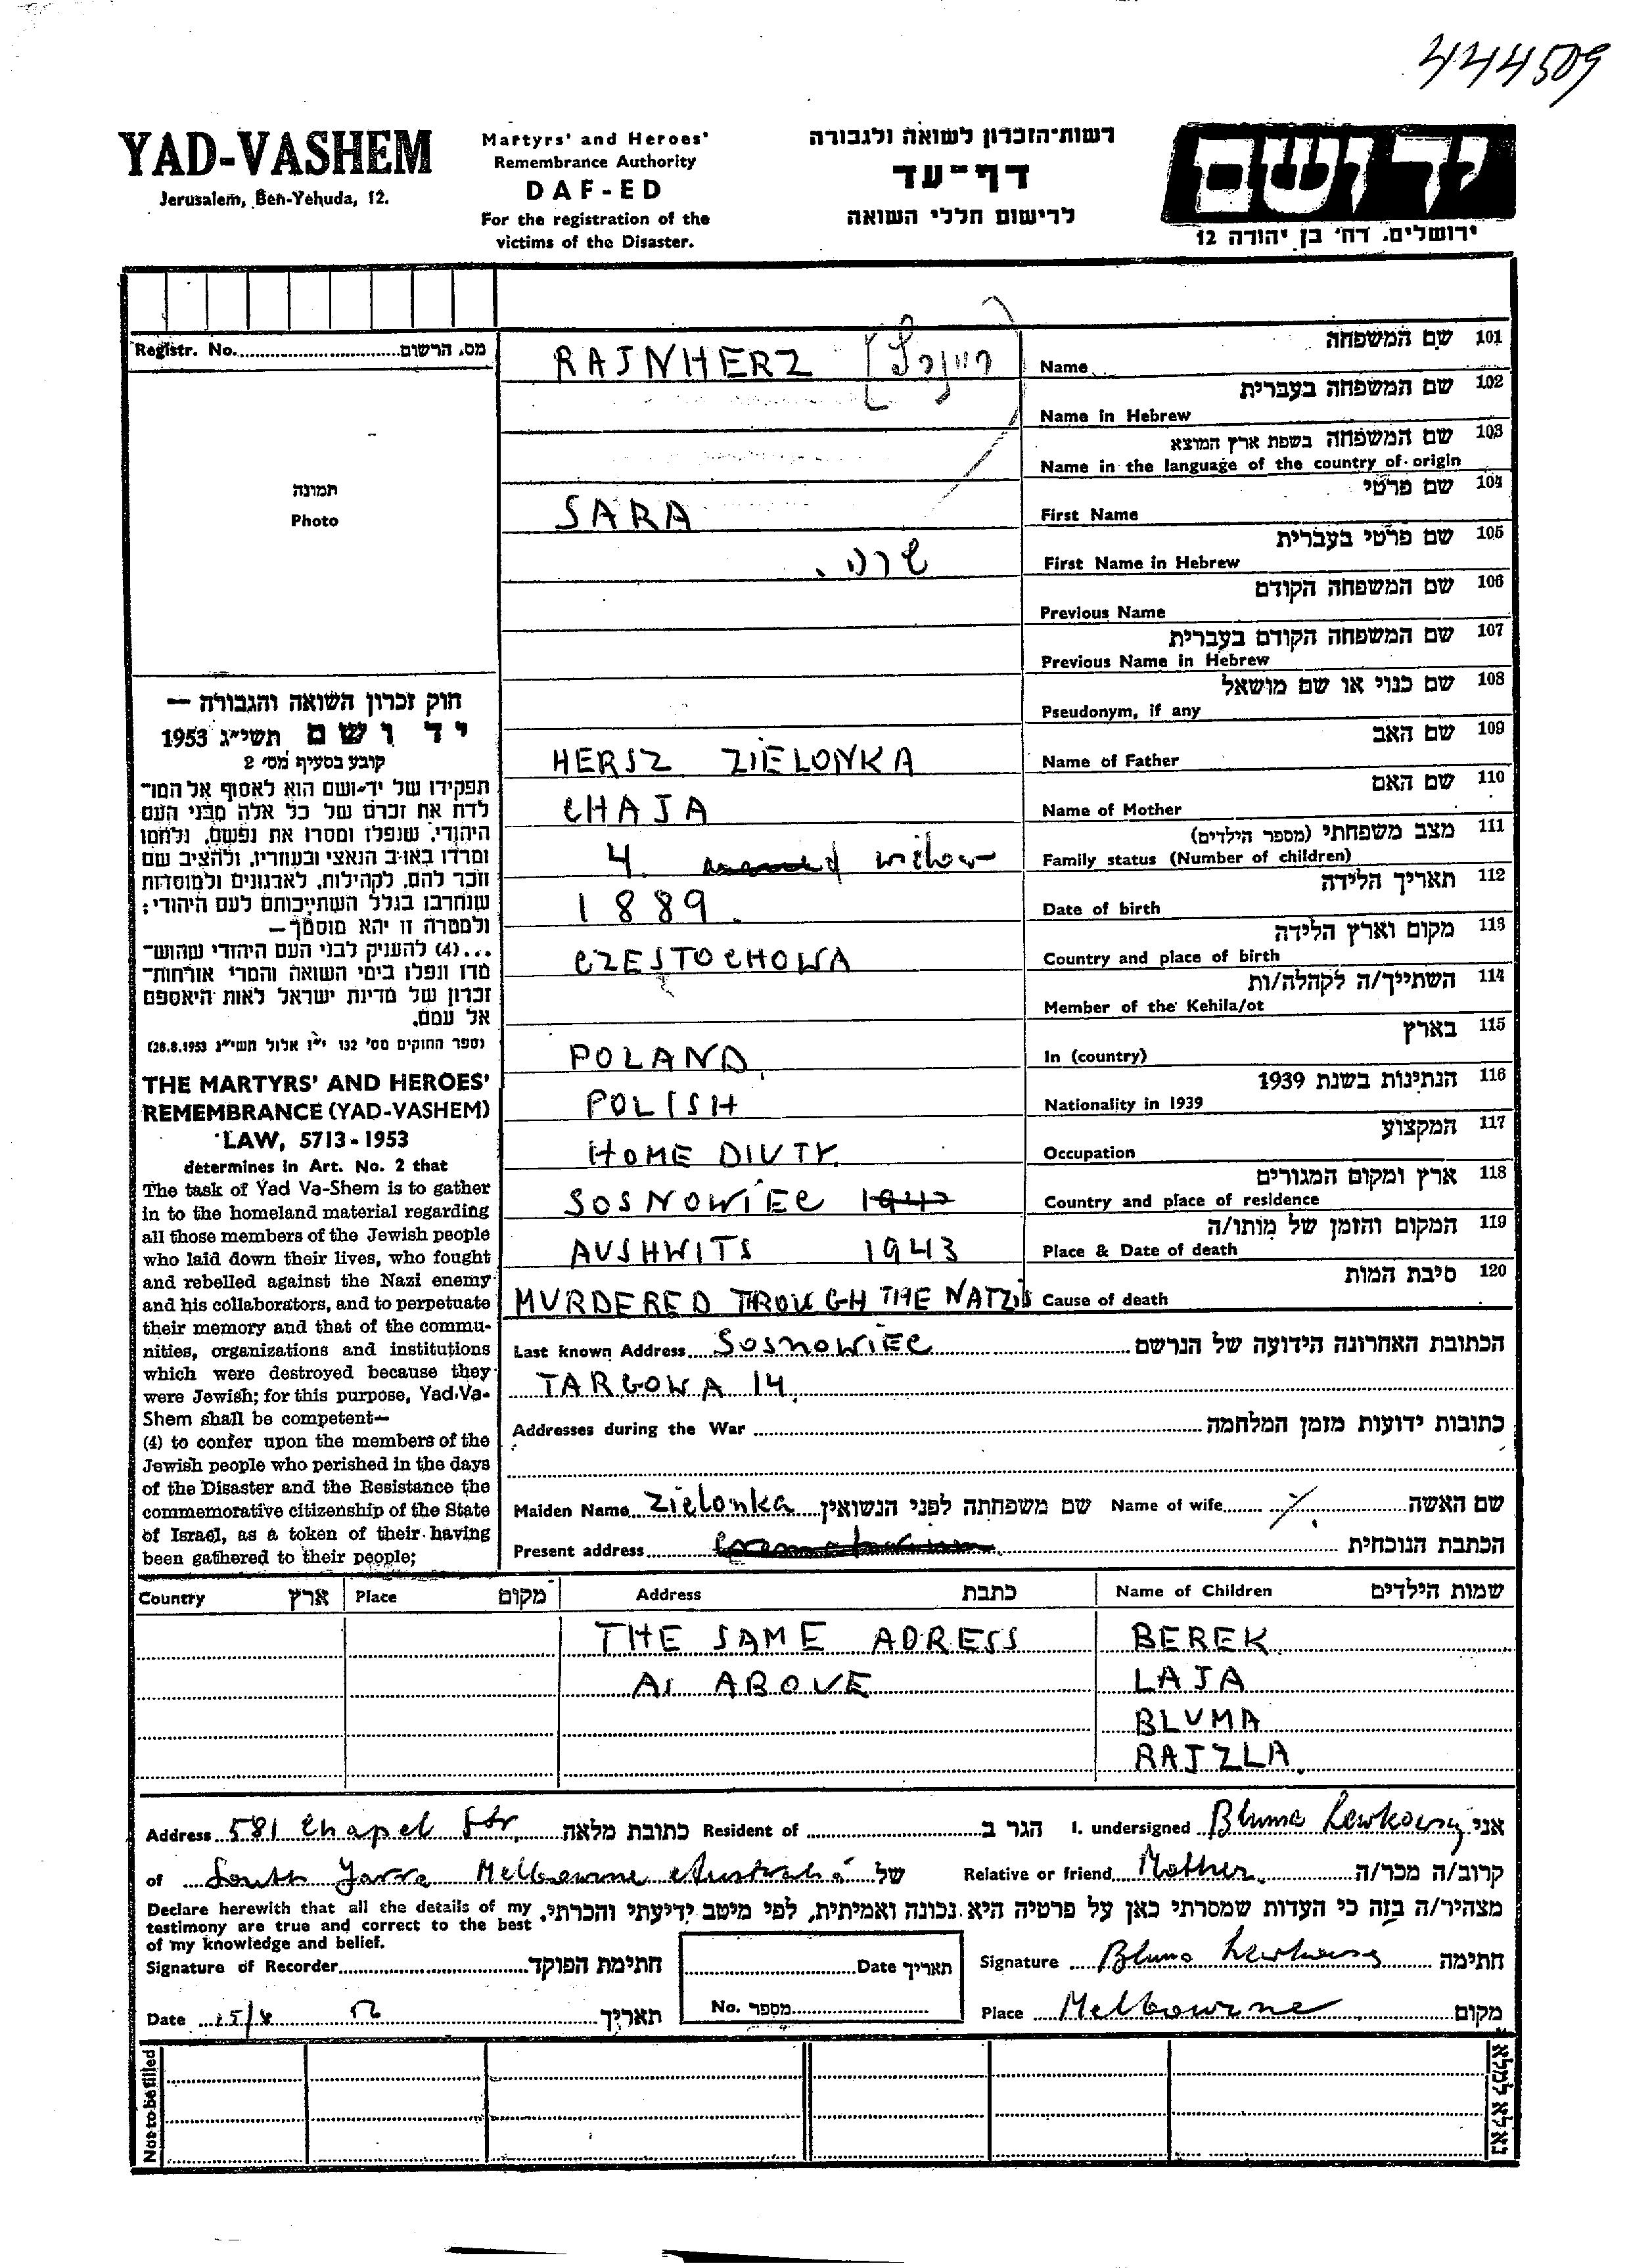 444509
YAD-VASHEM
Jerusalem, Ben-Yehuda, 12.
Martyrs' and Heroes'
Remembrance Authority
DAF-ED
For the registration of the
victims of the Disaster.
רשות-הזכרון לשואה ולגבורה
דף-עד
לרישום חללי השואה
ידושם
ירושלים, רח' בן יהודה 12
Registr. No. מס. הרשום
תמונה
Photo
חוק זכרון השואה והגבורה —
יד ושם תשי"ג 1953
קובע בסעיף מס' 2
תפקידו של יד-ושם הוא לאסוף אל המו-
לדת את זכרם של כל אלה מבני העם
היהודי, שנפלו ומסרו את נפשם, נלחמו
ומרדו באויב הנאצי ובעוזריו, ולהציב שם
וזכר להם, לקהילות, לארגונים ולמוסדות
שנחרבו בגלל השתייכותם לעם היהודי;
ולמטרה זו יהא מוסמך—
...(4) להעניק לבני העם היהודי שהוש-
מדו ונפלו בימי השואה והמרי אזרחות-
זכרון של מדינת ישראל לאות היאספם
אל עמם.
(ספר החוקים מס' 132 י"ז אלול תשי"ג 28.8.1953)
THE MARTYRS' AND HEROES'
REMEMBRANCE (YAD-VASHEM)
LAW, 5713-1953
determines in Art. No. 2 that
The task of Yad Va-Shem is to gather
in to the homeland material regarding
all those members of the Jewish people
who laid down their lives, who fought
and rebelled against the Nazi enemy
and his collaborators, and to perpetuate
their memory and that of the commu-
nities, organizations and institutions
which were destroyed because they
were Jewish; for this purpose, Yad-Va-
Shem shall be competent—
(4) to confer upon the members of the
Jewish people who perished in the days
of the Disaster and the Resistance the
commemorative citizenship of the State
of Israel, as a token of their having
been gathered to their people;
RAJNHERZ Name שם המשפחה 101
Name in Hebrew שם המשפחה בעברית 102
Name in the language of the country of origin שם המשפחה בשפת ארץ המוצא 103
SARA First Name שם פרטי 104
שרה. First Name in Hebrew שם פרטי בעברית 105
Previous Name שם המשפחה הקודם 106
Previous Name in Hebrew שם המשפחה הקודם בעברית 107
Pseudonym, if any שם כנוי או שם מושאל 108
HERSZ ZIELONKA Name of Father שם האב 109
CHAJA Name of Mother שם האם 110
4 widow Family status (Number of children) מצב משפחתי (מספר הילדים) 111
1889. Date of birth תאריך הלידה 112
CZESTOCHOWA Country and place of birth מקום וארץ הלידה 113
Member of the Kehila/ot השתייך/ה לקהלה/ות 114
POLAND In (country) בארץ 115
POLISH Nationality in 1939 הנתינות בשנת 1939 116
HOME DIUTY Occupation המקצוע 117
SOSNOWIEC 1942 Country and place of residence ארץ ומקום המגורים 118
AUSHWITS 1943 Place & Date of death המקום והזמן של מותו/ה 119
MURDERED TROUGH THE NATZIS Cause of death סיבת המות 120
Last known Address SOSNOWIEC הכתובת האחרונה הידועה של הנרשם
TARGOWA 14.
Addresses during the War כתובות ידועות מזמן המלחמה
Maiden Name Zielonka שם משפחתה לפני הנשואין Name of wife שם האשה
Present address הכתבת הנוכחית
Country ארץ Place מקום Address כתבת Name of Children שמות הילדים
THE SAME ADRESS BEREK
AS ABOVE LAJA
BLUMA
RAJZLA.
Address 581 Chapel Str. כתובת מלאה Resident of הגר ב I. undersigned Bluma Lewkowicz אני
of South Yarra Melbourne Australia של Relative or friend Mother. קרוב/ה מכר/ה
Declare herewith that all the details of my
testimony are true and correct to the best
of my knowledge and belief.
מצהיר/ה בזה כי העדות שמסרתי כאן על פרטיה היא נכונה ואמיתית, לפי מיטב ידיעתי והכרתי.
Signature of Recorder חתימת הפוקד Date תאריך Signature Bluma Lewkowicz חתימה
Date 15/4 תאריך No. מספר Place Melbourne מקום
Not to be filled
נא לא למלא